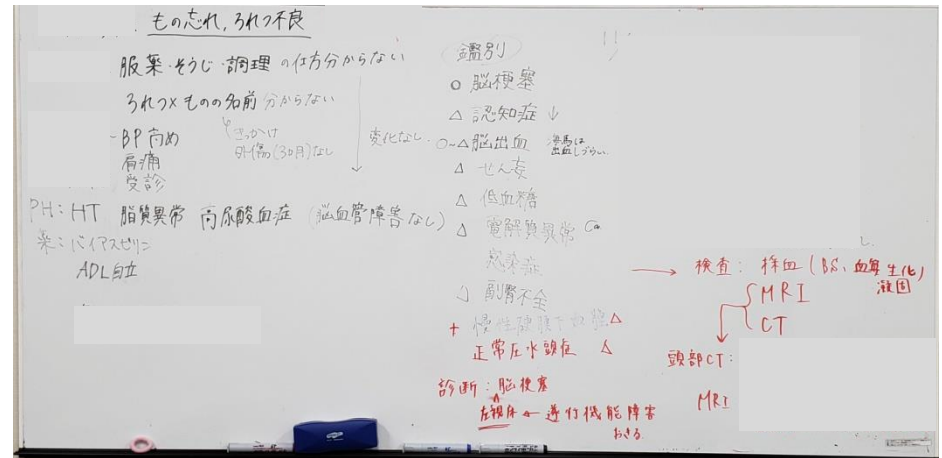 もの忘れ, ろれつ不良
服薬・そうじ・調理 の仕方分からない
ろれつ× ものの名前 分からない
きっかけ
外傷(3ヵ月)なし
変化なし
-BP高め
肩痛
受診
PH: HT 脂質異常 高尿酸血症 (脳血管障害なし)
薬: バイアスピリン
ADL自立
鑑別
○ 脳梗塞
△ 認知症 ↓
○-△ 脳出血 海馬は出血しづらい
△ せん妄
△ 低血糖
△ 電解質異常 Ca
感染症
副腎不全
+ 慢性硬膜下血腫 △
正常圧水頭症 △
診断: 脳梗塞
左視床 ← 遂行機能障害
おきる
→ 検査: 採血 (BS、血算 生化)
凝固
MRI
CT
頭部CT:
MRI